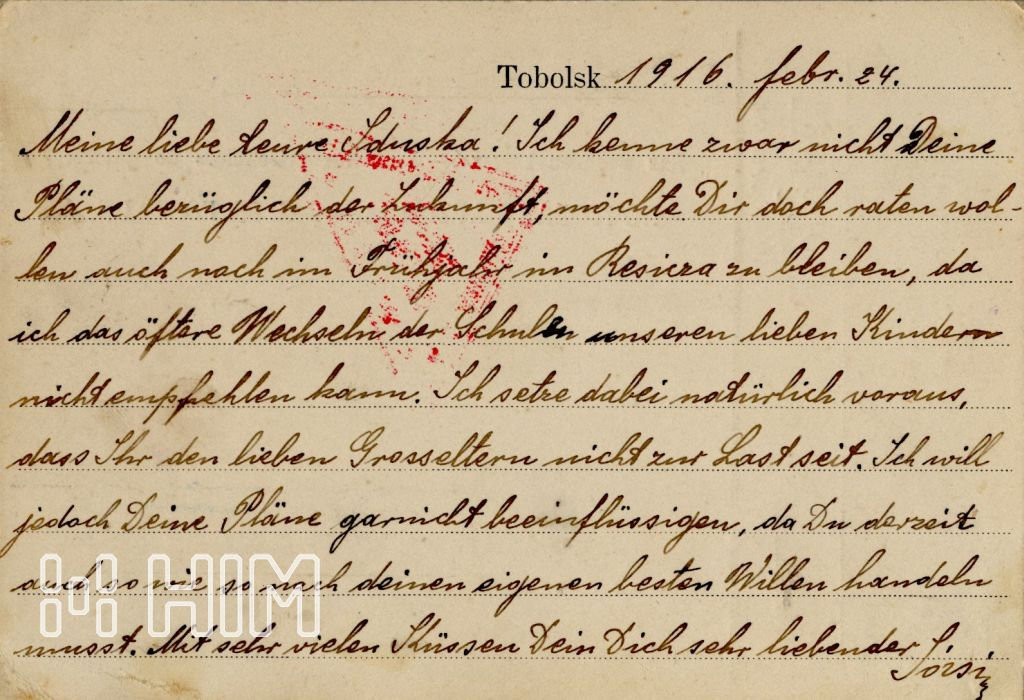 Tobolsk 1916. febr. 24.
Meine liebe teure Iduska! Ich kenne zwar nicht Deine
Pläne bezüglich der Zukunft, möchte Dir doch raten wol-
len auch noch im Frühjahr in Resicza zu bleiben, da
ich das öftere Wechseln der Schulen unseren lieben Kindern
nicht empfehlen kann. Ich setze dabei natürlich voraus,
dass Ihr den lieben Grosseltern nicht zur Last seit. Ich will
jedoch Deine Pläne garnicht beeinflüssigen, da Du derzeit
auch so wie so nach deinen eigenen besten Willen handeln
musst. Mit sehr vielen Küssen Dein Dich sehr liebender
HIM